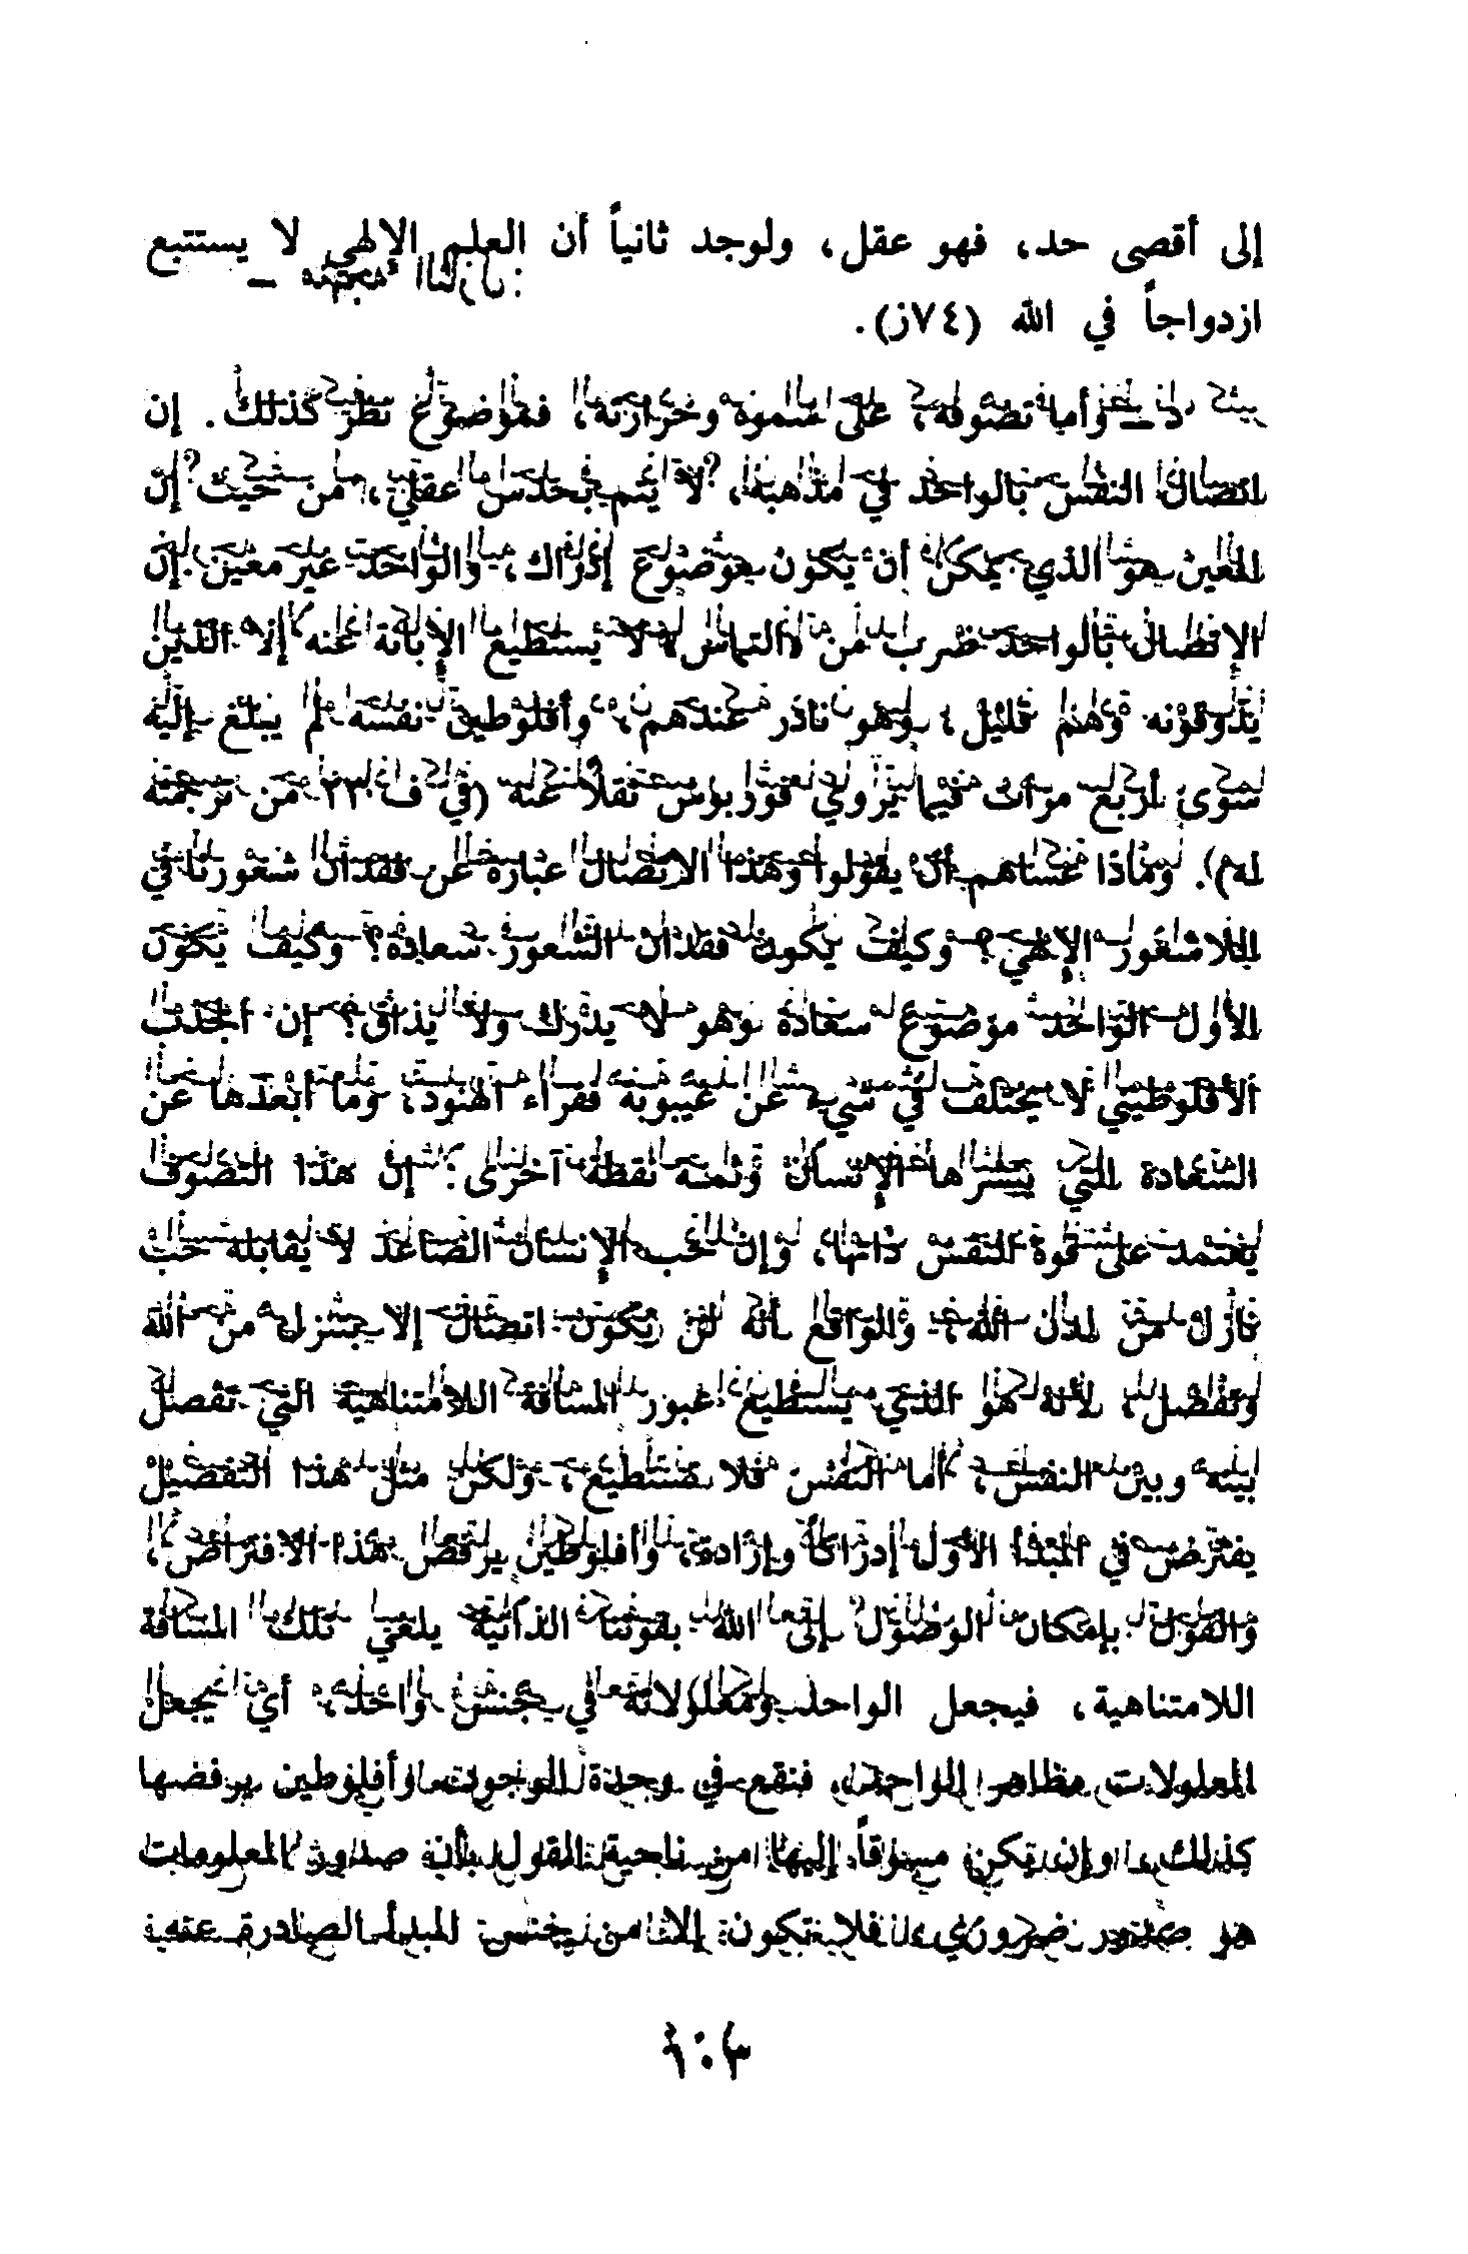 إلى أقصى حد، فهو عقل، ولوجد ثانياً أن العلم الإلهي لا يستتبع
ازدواجاً في الله (٧٤ز).
د – وأما تصوفه، على سموه وحرارته، فموضوع نظر كذلك. إن
اتصال النفس بالواحد في مذهبه، لا يتم بحدس عقلي، من حيث إن
المعين هو الذي يمكن أن يكون موضوع إدراك، والواحد غير معين. إن
الاتصال بالواحد ضرب من «التماس» لا يستطيع الإبانة عنه إلا الذين
يذوقونه وهم قليل، وهو نادر عندهم، وأفلوطين نفسه لم يبلغ إليه
سوى أربع مرات فيما يروي فورفوريوس نقلاً عنه (في ف ٢٣ من ترجمته
له). وماذا عساهم أن يقولوا وهذا الاتصال عبارة عن فقدان شعورنا في
اللاشعور الإلهي؟ وكيف يكون فقدان الشعور سعادة؟ وكيف يكون
الأول الواحد موضوع سعادة وهو لا يدرك ولا يذاق؟ إن الجذب
الأفلوطيني لا يختلف في شيء عن غيبوبة فقراء الهنود، وما أبعدها عن
السعادة التي ينشدها الإنسان وثمة نقطة أخرى: إن هذا التصوف
يعتمد على قوة النفس ذاتها، وإن حب الإنسان الصاعد لا يقابله حب
نازل من لدن الله، والواقع أنه لن يكون اتصال إلا بتنزل من الله
وتفضل، لأنه هو الذي يستطيع عبور المسافة اللامتناهية التي تفصل
بينه وبين النفس، أما النفس فلا تستطيع، ولكن مثل هذا التفضيل
يفترض في المبدأ الأول إدراكاً وإرادة، وأفلوطين يرفض هذا الافتراض،
والقول بإمكان الوصول إلى الله بقوتنا الذاتية يلغي تلك المسافة
اللامتناهية، فيجعل الواحد ومعلولاته في جنس واحد، أي يجعل
المعلولات مظاهر الواحد، فنقع في وحدة الوجود، وأفلوطين يرفضها
كذلك، وإن يكن مسوقاً إليها من ناحية القول بأن صدور المعلومات
هو صدور ضروري، فلا تكون إلا من جنس المبدأ الصادرة عنه.
١٠٣